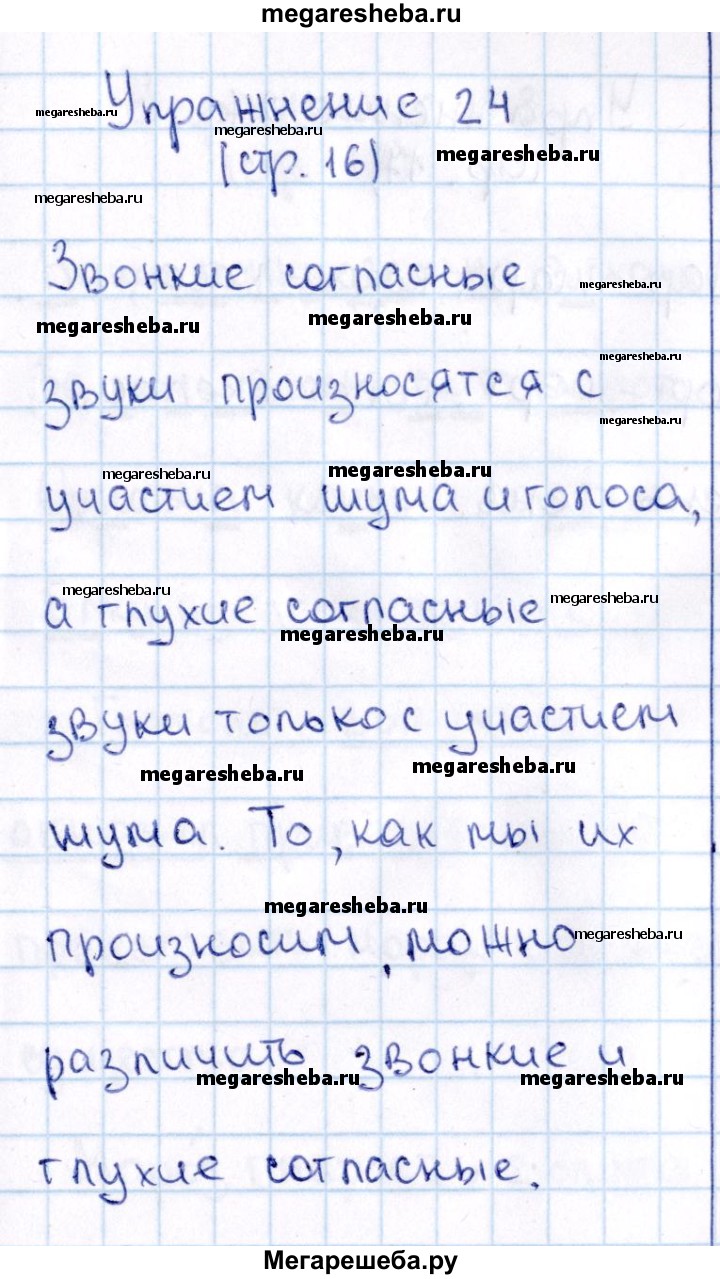 megaresheba.ru
Упражнение 24
megaresheba.ru
megaresheba.ru
(стр. 16)
megaresheba.ru
megaresheba.ru
Звонкие согласные
megaresheba.ru
megaresheba.ru
megaresheba.ru
megaresheba.ru
звуки произносятся с
megaresheba.ru
megaresheba.ru
megaresheba.ru
участием шума и голоса,
megaresheba.ru
megaresheba.ru
а глухие согласные
megaresheba.ru
звуки только с участием
megaresheba.ru
megaresheba.ru
шума. То, как мы их
megaresheba.ru
произносим, можно
megaresheba.ru
различить звонкие и
megaresheba.ru
megaresheba.ru
глухие согласные.
Мегарешеба.ру